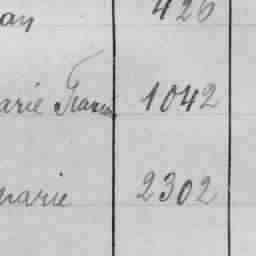 an 426
arie Francin 1042
marie 2302